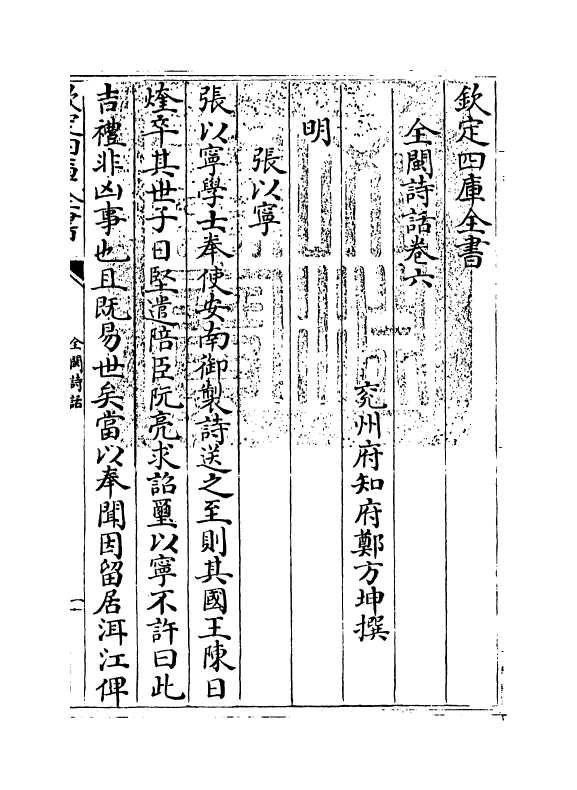 欽定四庫全書
全閩詩話卷六
兖州府知府鄭方坤撰
明
張以寧
張以寧學士奉使安南御製詩送之至則其國王陳日
煃卒其世子日堅遣陪臣阮亮求詔璽以寧不許曰此
吉禮非凶事也且既易世矣當以奉聞因留居洱江俾
欽定四庫全書
全閩詩話
一